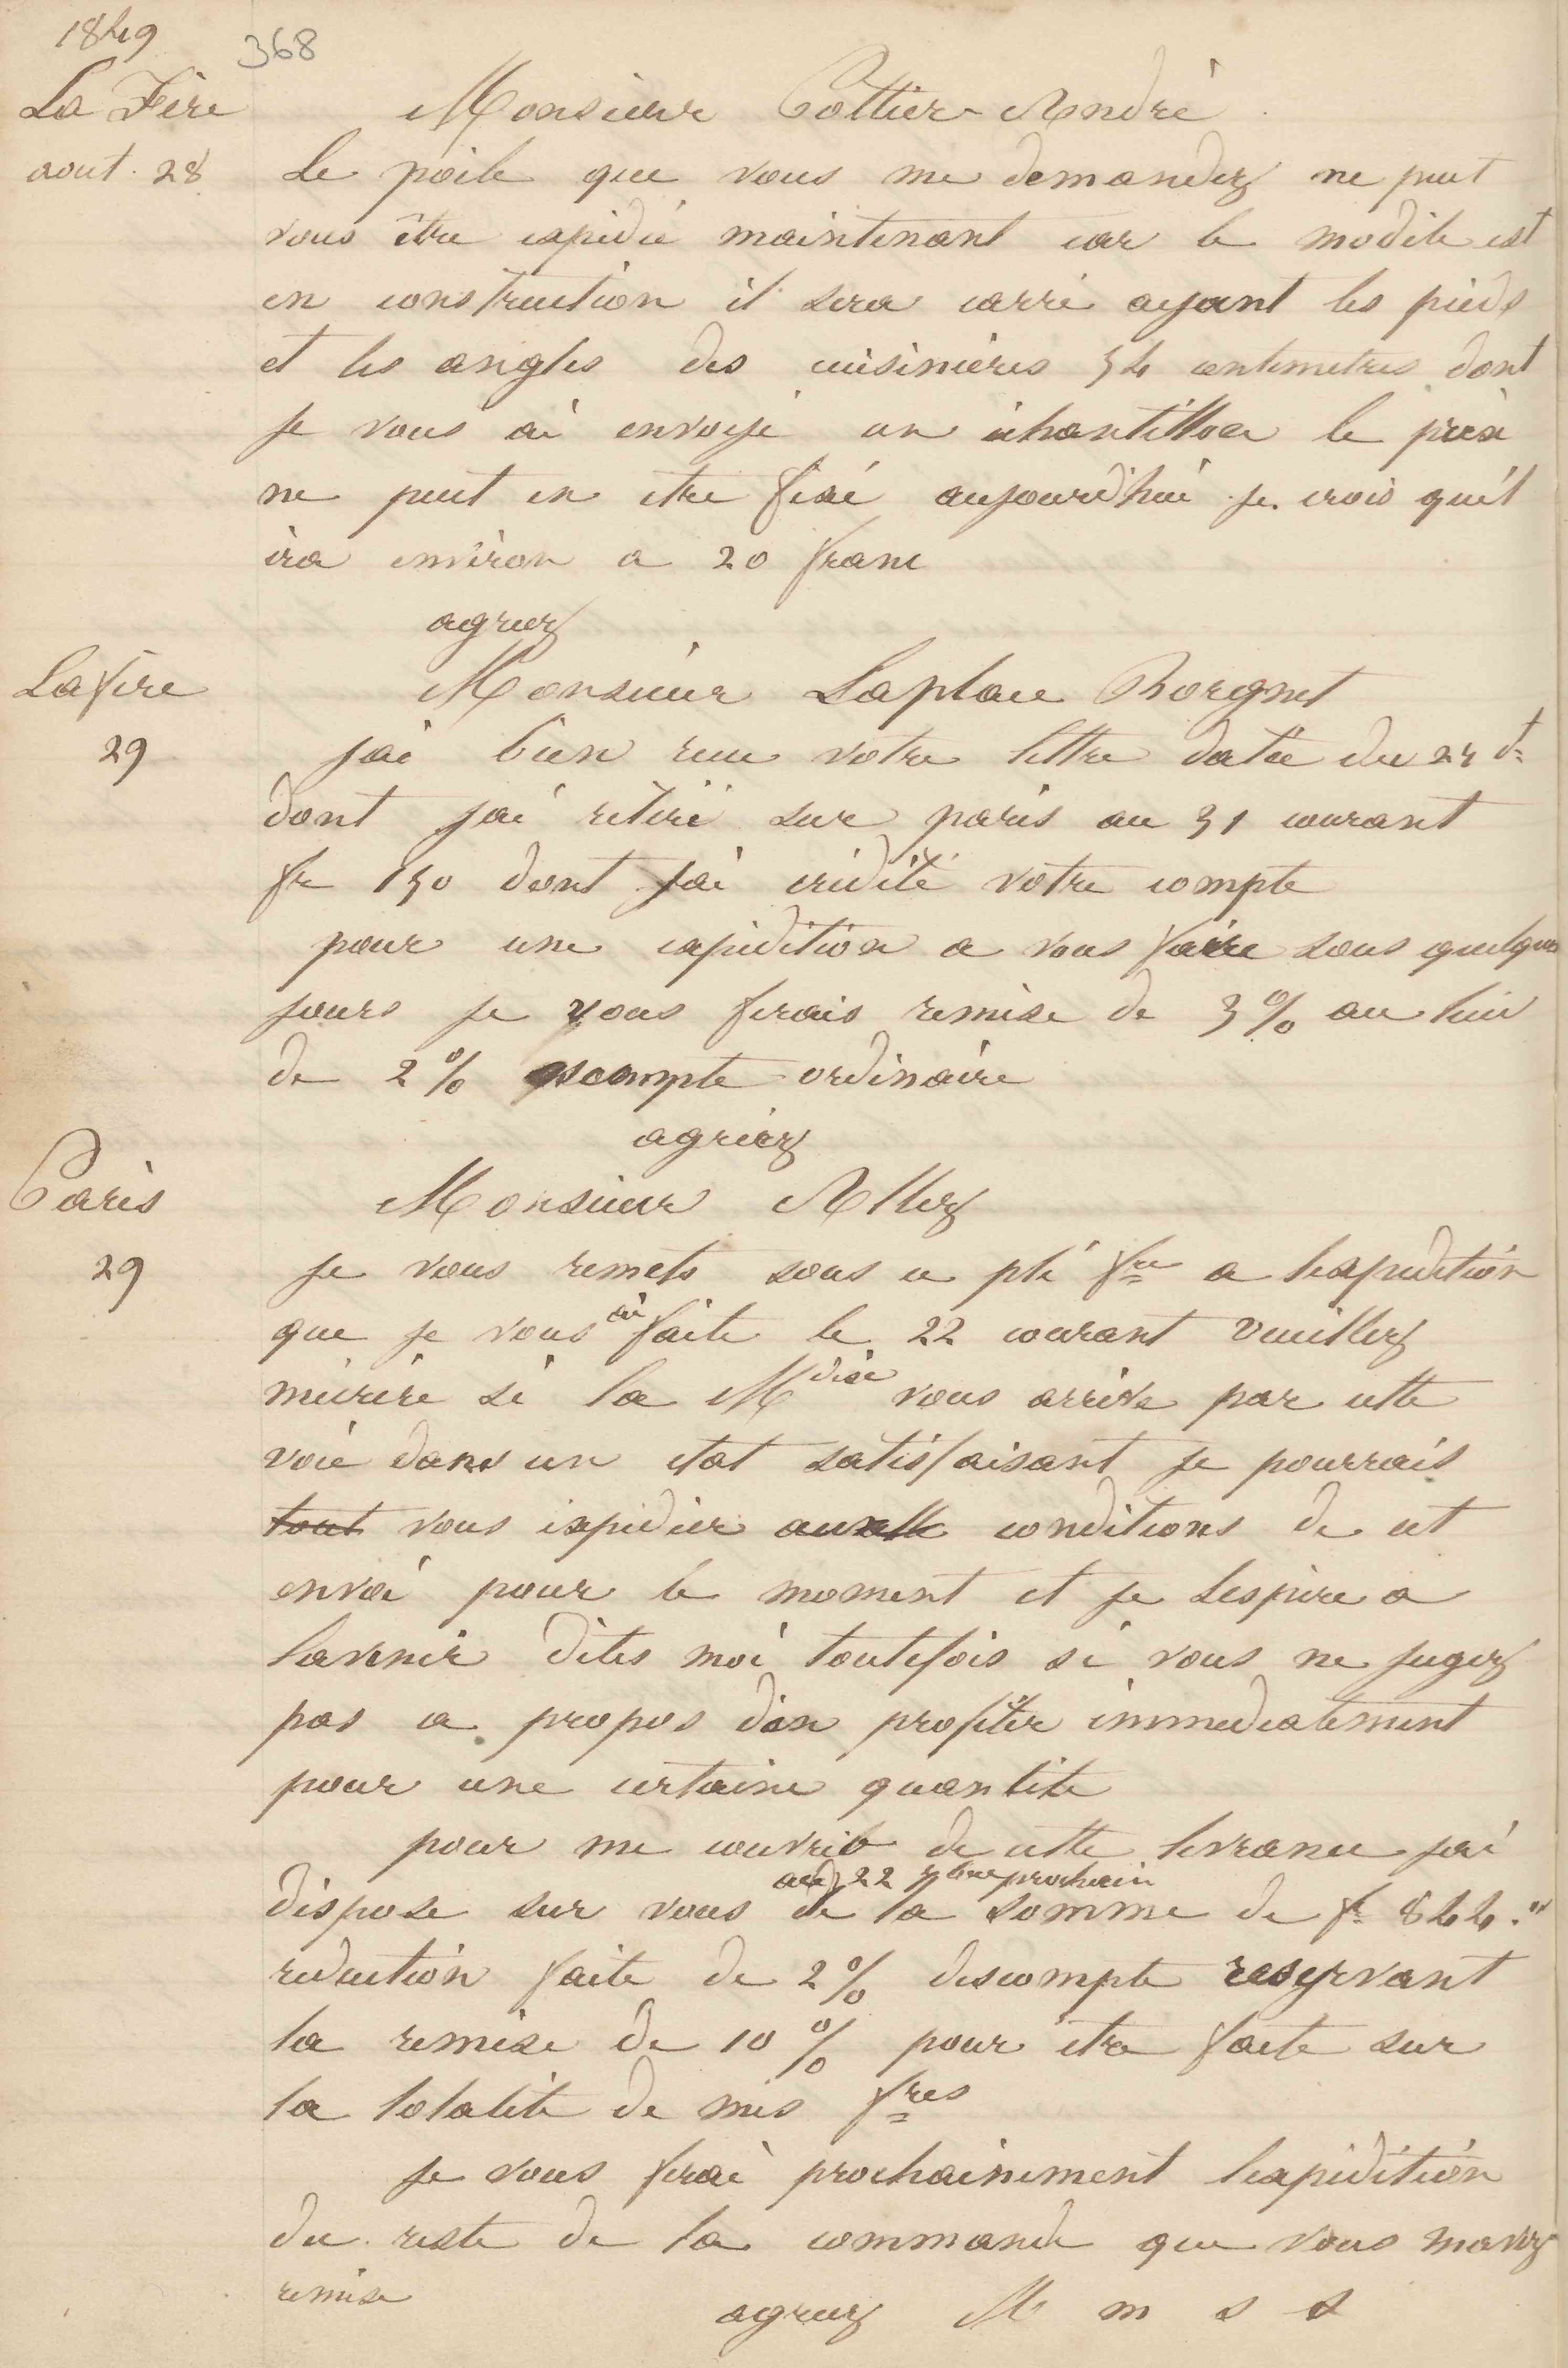 1849
368
La Fère
Monsieur Pottier-André
aout. 28
Le poêle que vous me demandez ne peut
vous être expédié maintenant car le modèle est
en construction il sera carré ayant les pieds
et les angles des cuisinières 34 centimetres dont
je vous ai envoyé un échantillon le prix
ne peut en etre fixé aujourd'hui je crois qu'il
ira environ a 20 franc
agreez
Lafère
Monsieur Laplace Borgnet
29
jai bien recu votre lettre datée du 24 dt
dont jai retiré sur paris au 31 courant
fr 150 dont jai crédité votre compte
pour une expédition a vous faire sous quelques
jours je vous ferais remise de 3% au lieu
de 2% escompte ordinaire
agréez
Paris
Monsieur Allez
29
je vous remets sous ce pli fre a lexpedition
que je vous ai faite le 22 courant veuillez
mécrire si la Mdise vous arrive par cette
voie dans un etat satisfaisant je pourrais
tout vous expédier aux conditions de cet
envoi pour le moment et je lespère a
lavenir dites moi toutefois si vous ne jugez
pas a propos den profiter immediatement
pour une certaine quantite
pour me couvrir de cette livrance jai
au 22 7bre prochain
dispose sur vous de la somme de fr 844."
reduction faite de 2% descompte reservant
la remise de 10% pour etre faite sur
la totalite de mes fres
je vous ferai prochainement lexpédition
du reste de la commande que vous mavez
remise
agreez M m s s